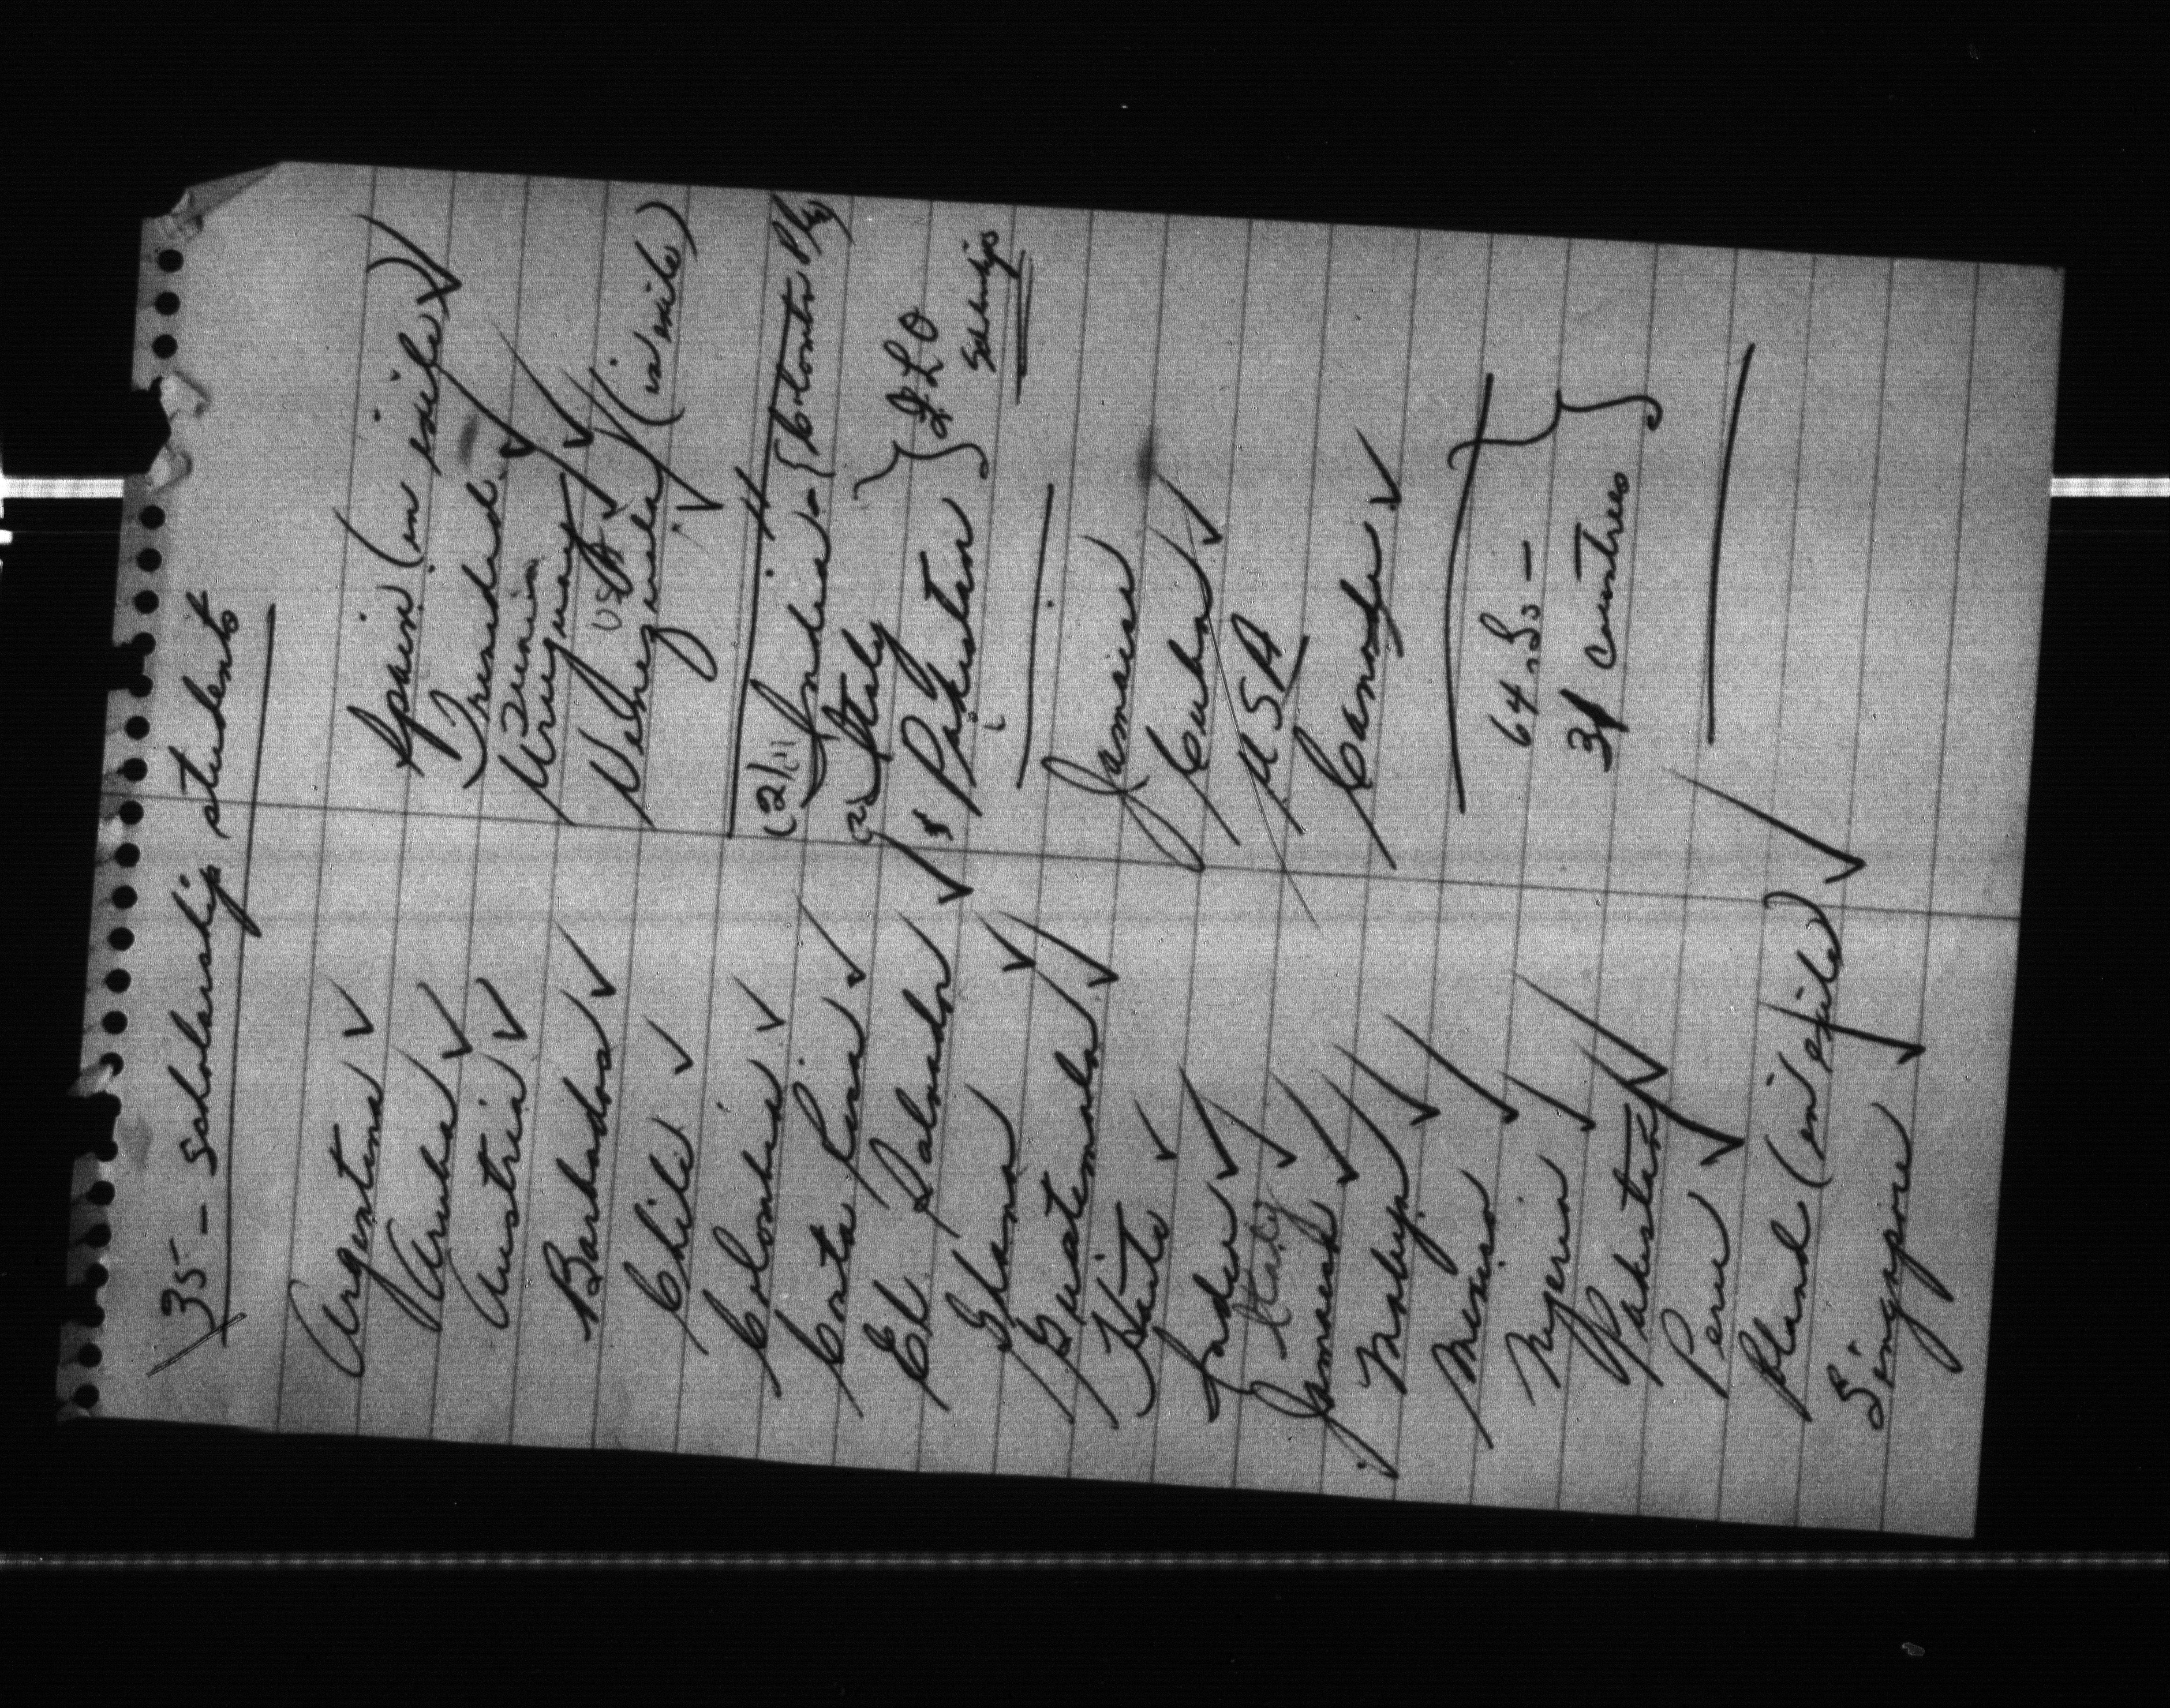 35 - Scholarship students
Argentina ✓
Aruba ✓
Austria ✓
Barbados ✓
Chile ✓
Colombia ✓
Costa Rica ✓
El Salvador ✓
Ghana ✓
Guatemala ✓
Haiti ✓
India ✓
Italy ✓
Jamaica ✓
Malaya ✓
Mexico ✓
Nigeria ✓
Pakistan ✓
Peru ✓
Poland (in exile) ✓
Singapore ✓
Spain (in exile) ✓
Trinidad ✓
Tunisia
Uruguay ✓
USA ✓
Venezuela (in exile) ✓
(2) India - {Colombo Plan}
(2) Italy
1 Pakistan } ILO
Scholarships
Jamaica
Cuba ✓
USA
Canada ✓
64 Ss -
31 countries }